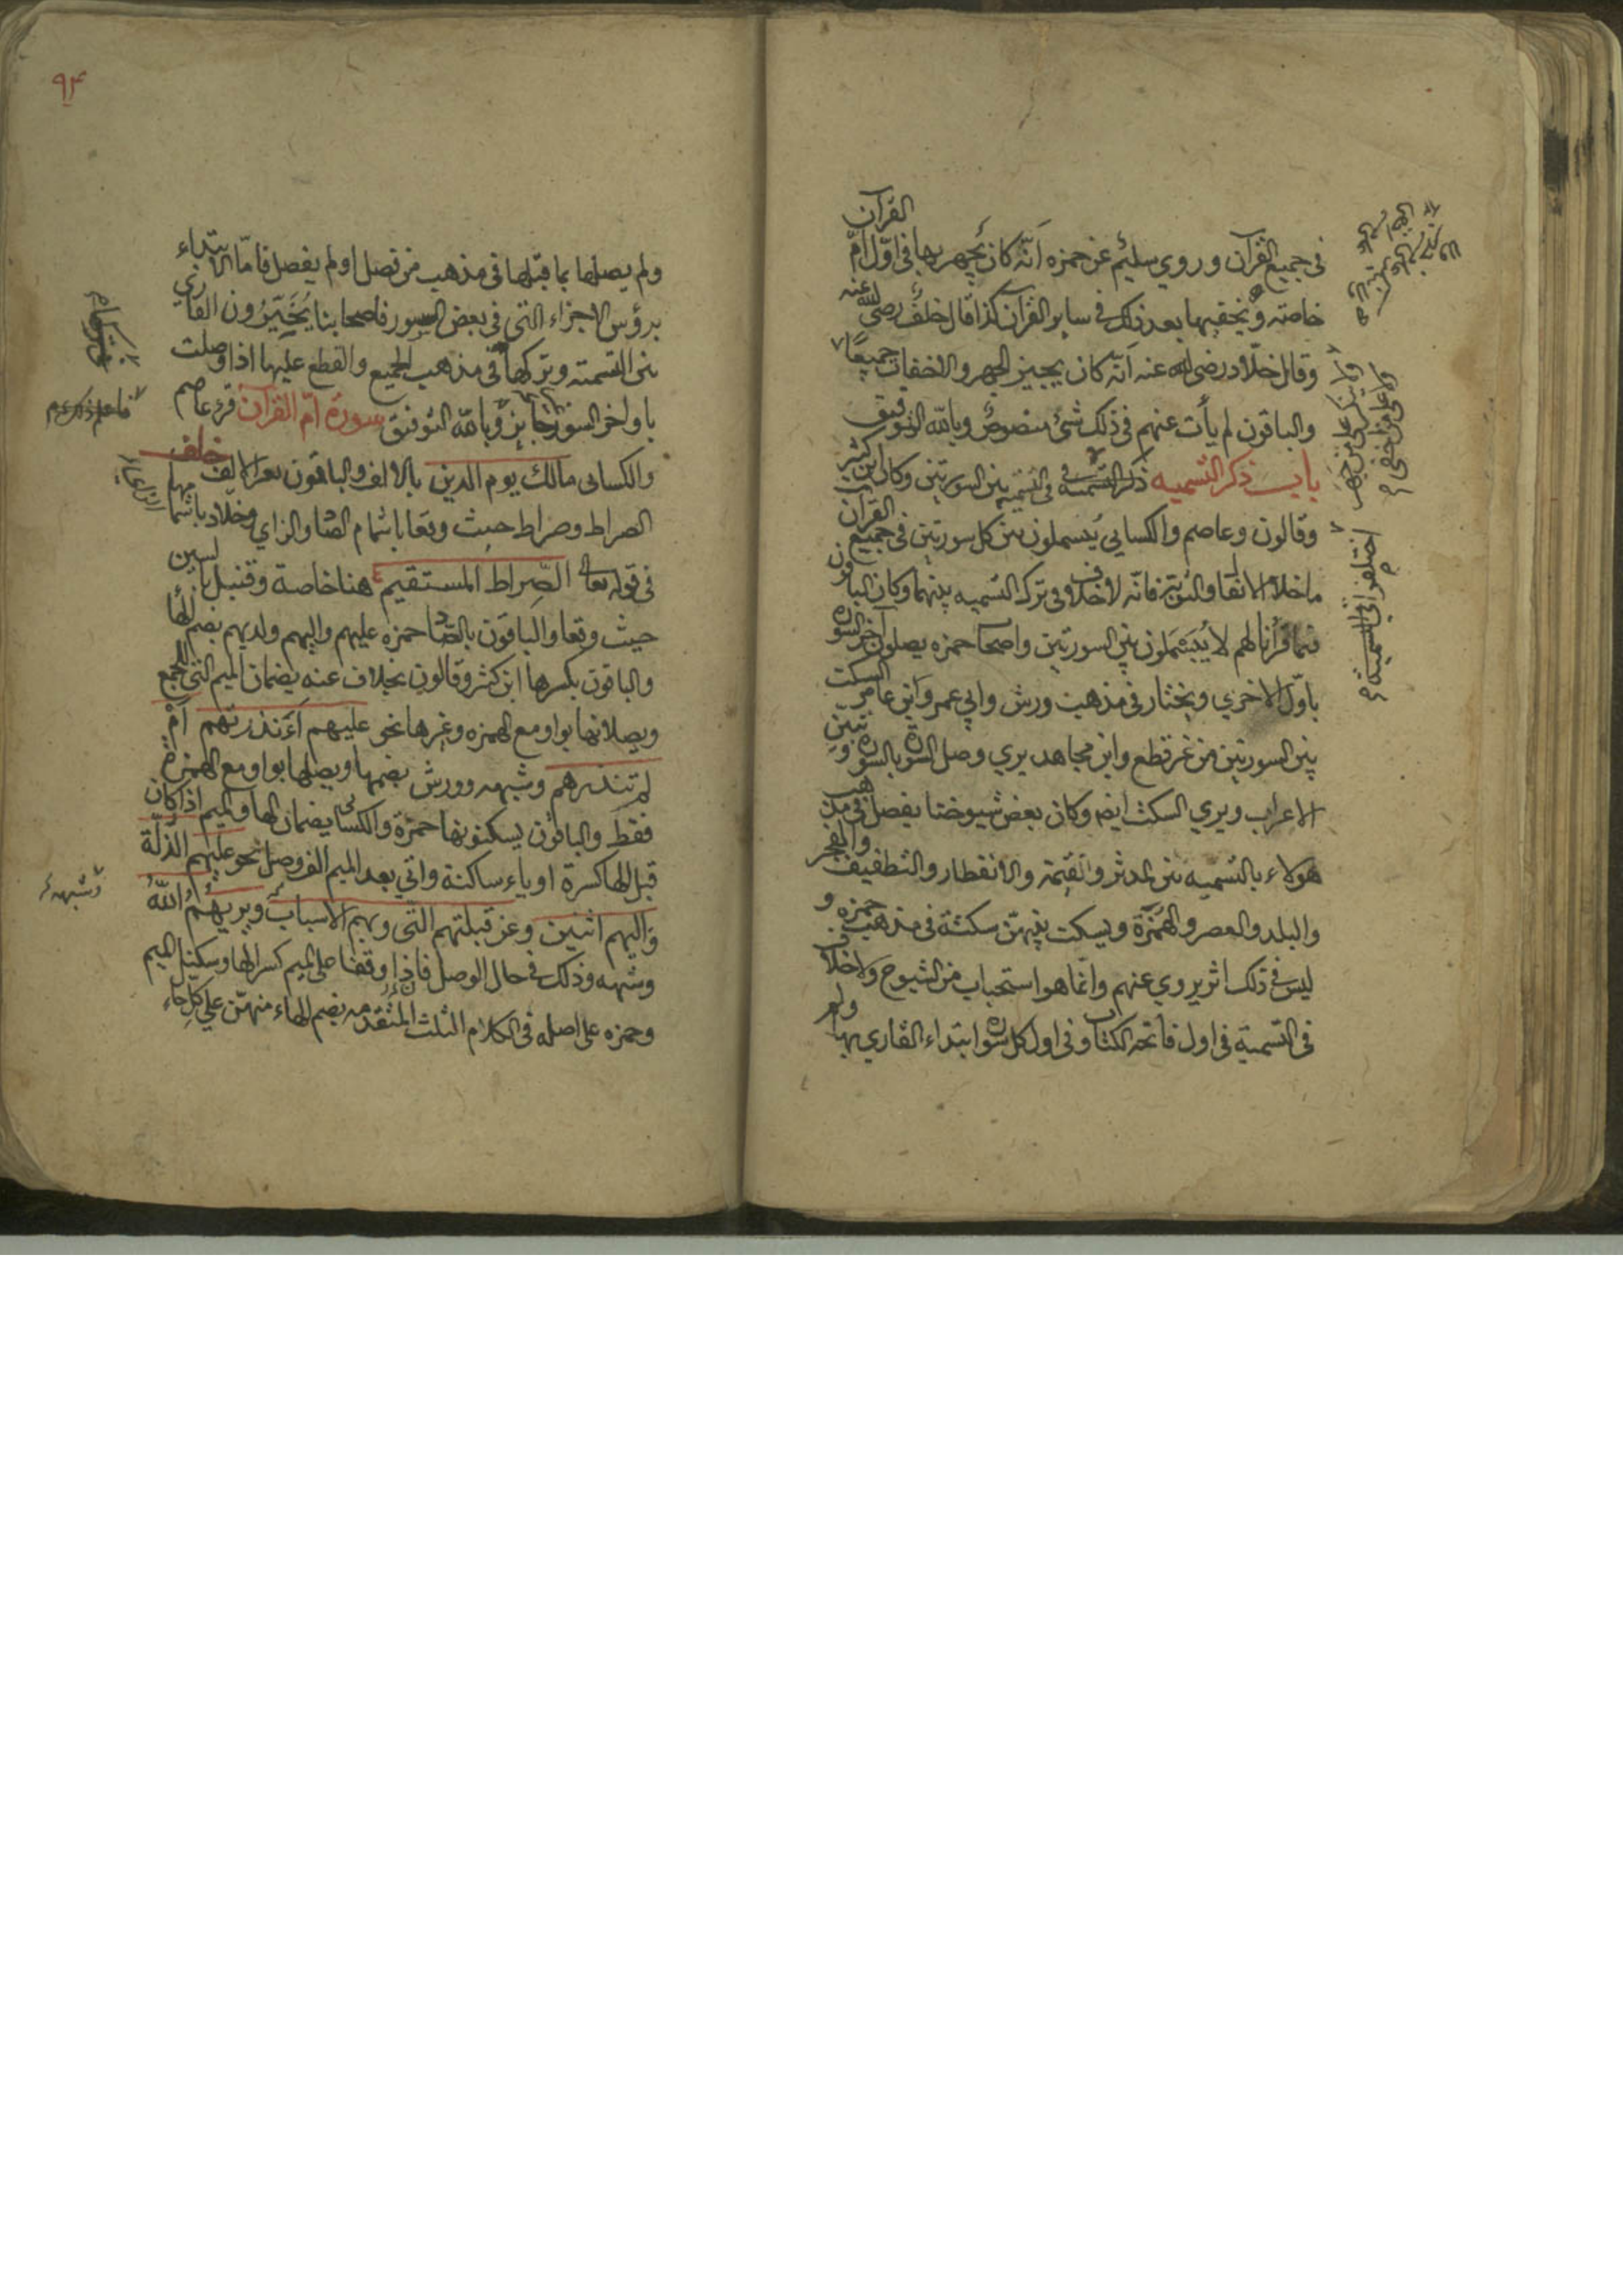 في جميع القرآن وروي سليم عن حمزه انّه كان يجهر بها في اوّل امّ القرآن
خاصته ويخفيها بعد ذلك في ساير القرآن كذا قال خلف رضي الله عنه
وقال خلّاد رضي الله عنه انّه كان يجيز الجهر والاخفات جميعًا
والباقون لم يأت عنهم في ذلك شئ منصوص وبالله التوفيق
باب ذكر التسميه في التسميه بين السورتين وكان ابن كثير
وقالون وعاصم والكسايي يبسملون بين كل سورتين في جميع القرآن
ماخلا الانفال والتوبة فانّه لاخلاف في ترك التسميه بينهما وكان الباقون
فيما قرأنا لهم لا يبسملون بين السورتين واصحاب حمزه يصلون آخر السورة
باوّل الاخري ويختار في مذهب ورش وابي عمرو وابن عامر السكت
بين السورتين من غير قطع وابن مجاهد يري وصل السورة بالسورة وتبيّن
الاعراب ويري السكت ايضا وكان بعض شيوخنا يفصل في مذهب
هولاء بالتسميه بين المدثر والقيمة والانفطار والتطفيف والفجر
والبلد والعصر والهمزة ويسكت بينهنّ سكتة في مذهب حمزه و
ليس في ذلك اثر يروي عنهم وانّما هو استحباب من الشيوخ ولا خلاف
في التسمية في اول فاتحة الكتاب وفي اول كل سورة ابتداء القاري بها ولم
اختلفوا في التسمية
٩٤
ولم يصلها بما قبلها في مذهب من فصل او لم يفصل فامّا الابتداء
برؤس الاجزاء التي في بعض السور فاصحابنا يُخَيّرُون القاري
بين التسمته وتركها في مذهب الجميع والقطع عليها اذا وصلت
باواخر السور جايز وبالله التوفيق سورة امّ القرآن قرء عاصم
والكسايي مالك يوم الدين بالالف والباقون بغير الف خلف
الصراط وصراط حيث وقعا باشمام الصاد الزاي وخلّاد باشمامها
في قوله تعالى الصّراط المستقيم هنا خاصة وقنبل بالسين
حيث وقعا والباقون بالصّاد حمزه عليهم واليهم ولديهم بضم الهاء
والباقون بكسرها ابن كثير وقالون بخلاف عنه يضمان الميم التي للجمع
ويصلانها بواو مع الهمزه وغيرها نحو عليهم ءَأنذرتهم امْ
لم تنذرهم وشبهه وورش يضمها ويصلها بواو مع الهمزة
فقط والباقون يسكنونها حمزة والكسايي يضمان الهاء والميم اذا كان
قبل الهاء كسرة او ياء ساكنة واتي بعد الميم الف وصل نحو عليهم الذلّة
واليهم اثنين وعن قبلتهم التي وبهم الاسباب ويريهم الله
وشبهه وذلك في حال الوصل فاذا وقفا على الميم كسرا الهاء وسكنا الميم
وحمزه على اصله في الكلام الثلث المتقدمه بضم الهاء منهنّ علي كل حاء
وشبهه